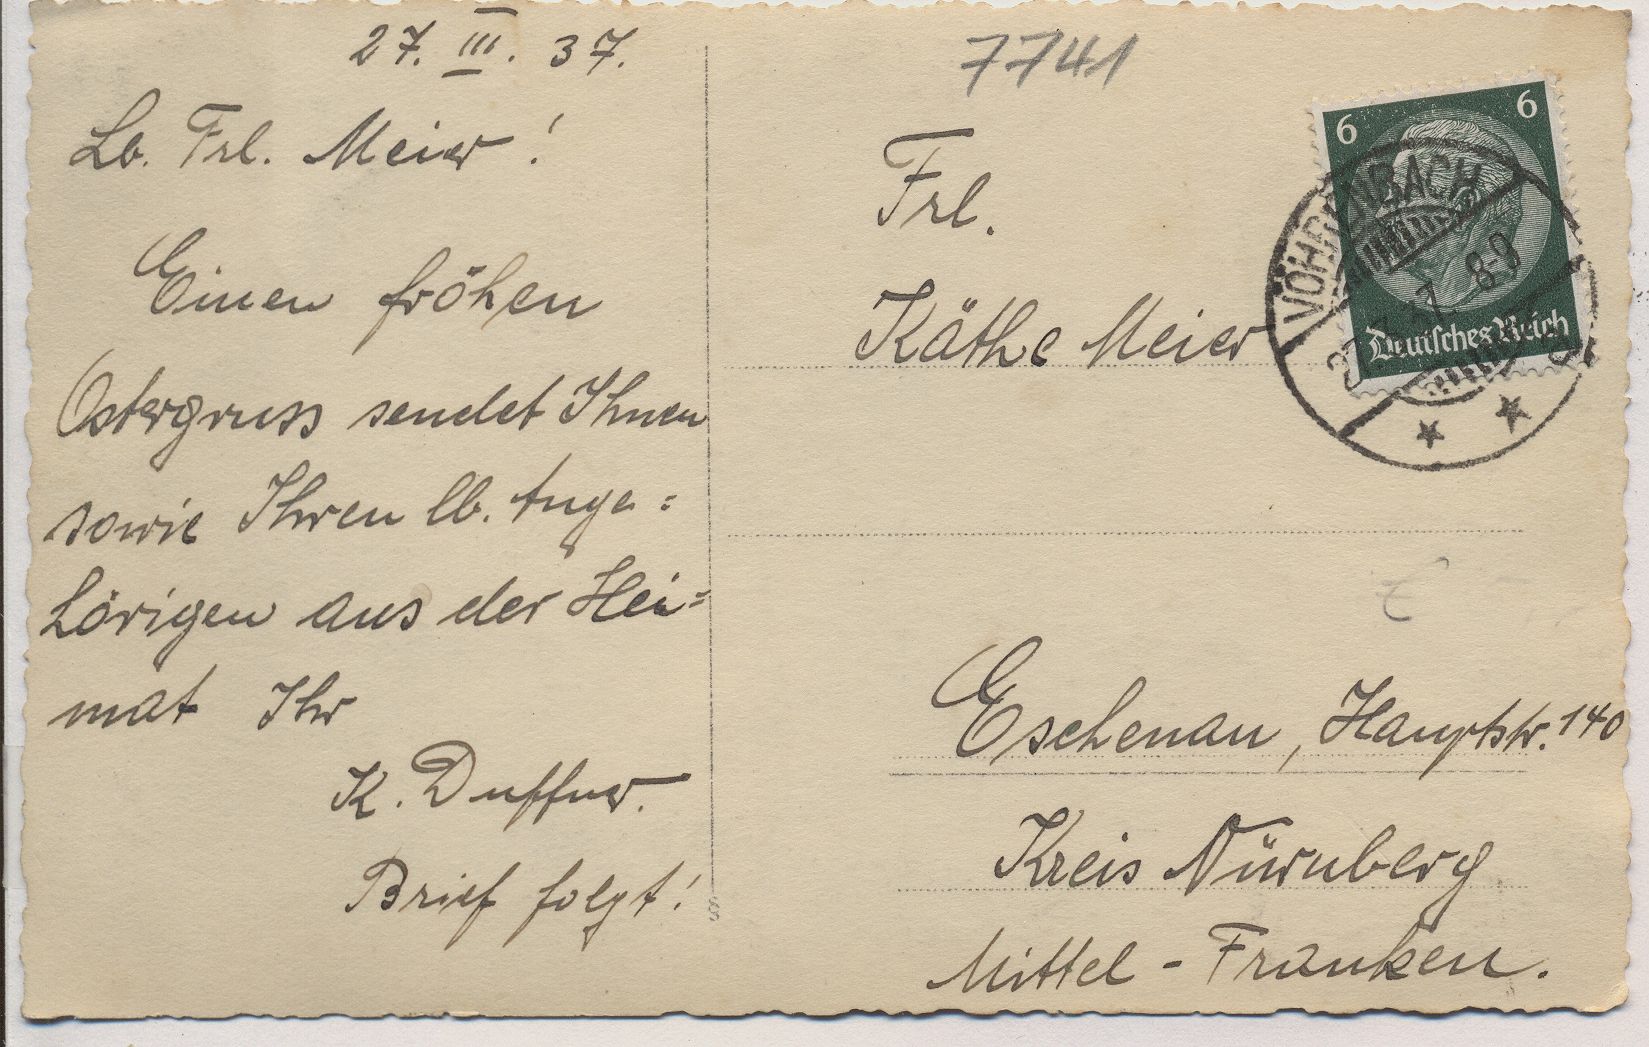 27. III. 37.
Lb. Frl. Meier!
Einen fröhen
Ostergruss sendet Ihnen
sowie Ihren lb. Ange=
hörigen aus der Hei=
mat Ihr
K. Duffner.
Brief folgt!
7741
Frl.
Käthe Meier
Eschenau, Hauptstr. 140
Kreis Nürnberg
Mittel-Franken.
6 6
Deutsches Reich
VÖHRENBACH
8-9